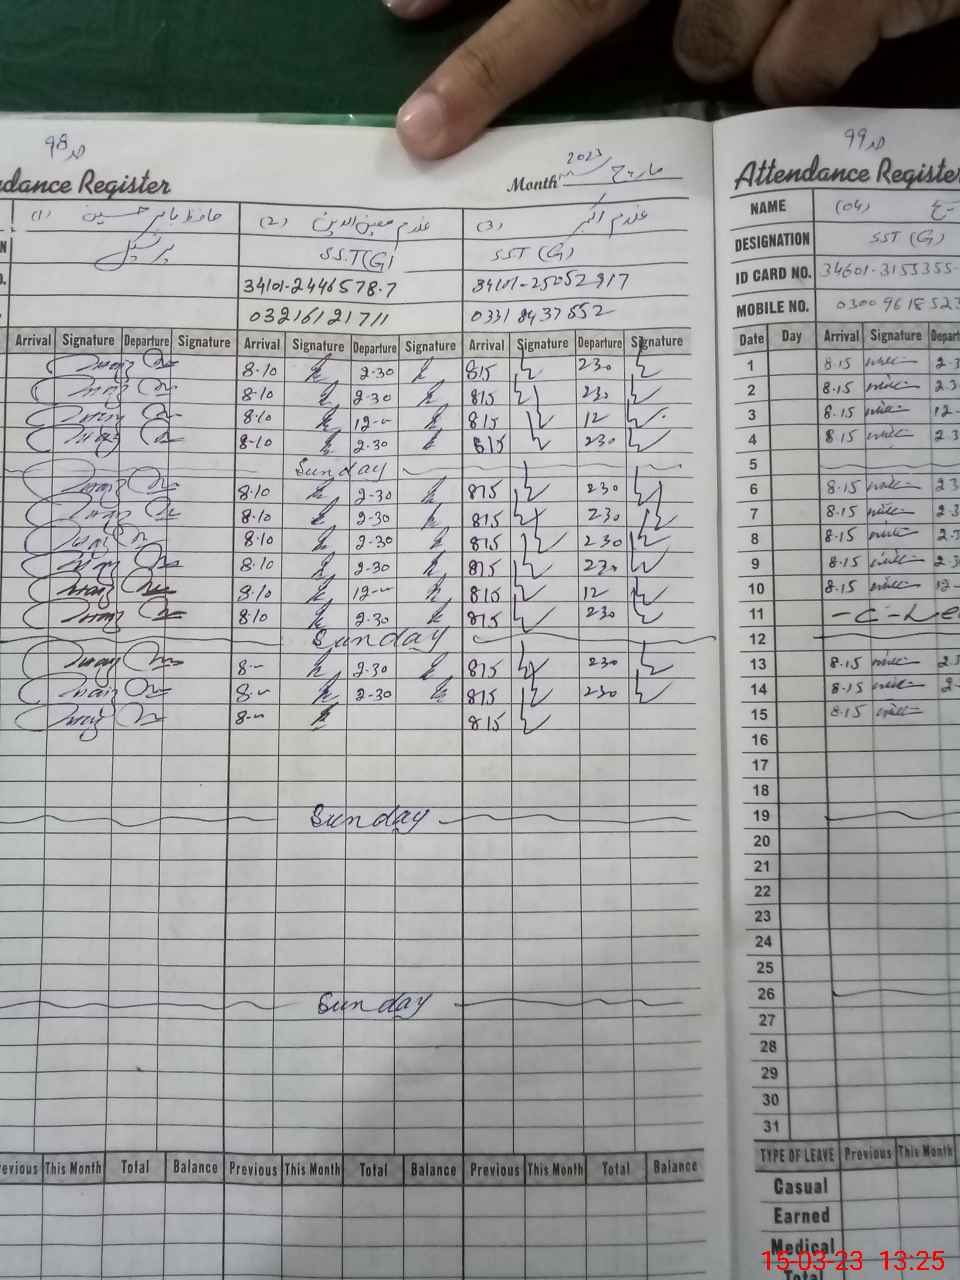 98
dance Register
Month مارچ 2023
(1) حافظ بابر حسین (2) غلام معین الدین (3) غلام اکبر
پرنسپل S.S.T(G) SST (G)
34101-2446578-7 34101-25052917
03216121711 03318437552
Arrival Signature Departure Signature Arrival Signature Departure Signature Arrival Signature Departure Signature
8-10 2-30 815 230
8-10 2-30 815 230
8-10 12- 815 12
8-10 2-30 815 230
Sunday
8-10 2-30 815 230
8-10 2-30 815 230
8-10 2-30 815 230
8-10 2-30 815 230
8-10 12- 815 12
8-10 2-30 815 230
Sunday
8- 2-30 815 230
8- 2-30 815 230
8- 815
Sunday
Sunday
evious This Month Total Balance Previous This Month Total Balance Previous This Month Total Balance
99
Attendance Register
NAME (04)
DESIGNATION SST (G)
ID CARD NO. 34601-3155355-
MOBILE NO. 03009618523
Date Day Arrival Signature Depart
1 8.15 2-3
2 8.15 2-3
3 8.15 12-
4 8.15 2-3
5
6 8.15 2-3
7 8.15 2-3
8 8.15 2-3
9 8.15 2-3
10 8.15 12-
11 -C-Le
12
13 8.15 2-3
14 8-15 2-
15 8.15
16
17
18
19
20
21
22
23
24
25
26
27
28
29
30
31
TYPE OF LEAVE Previous This Month
Casual
Earned
Medical
Total
15-03-23 13:25